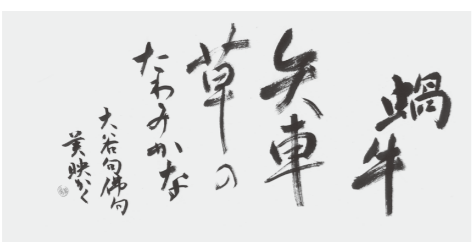 蝸牛
矢車
草の
たわみかな
大谷句佛句
美映かく